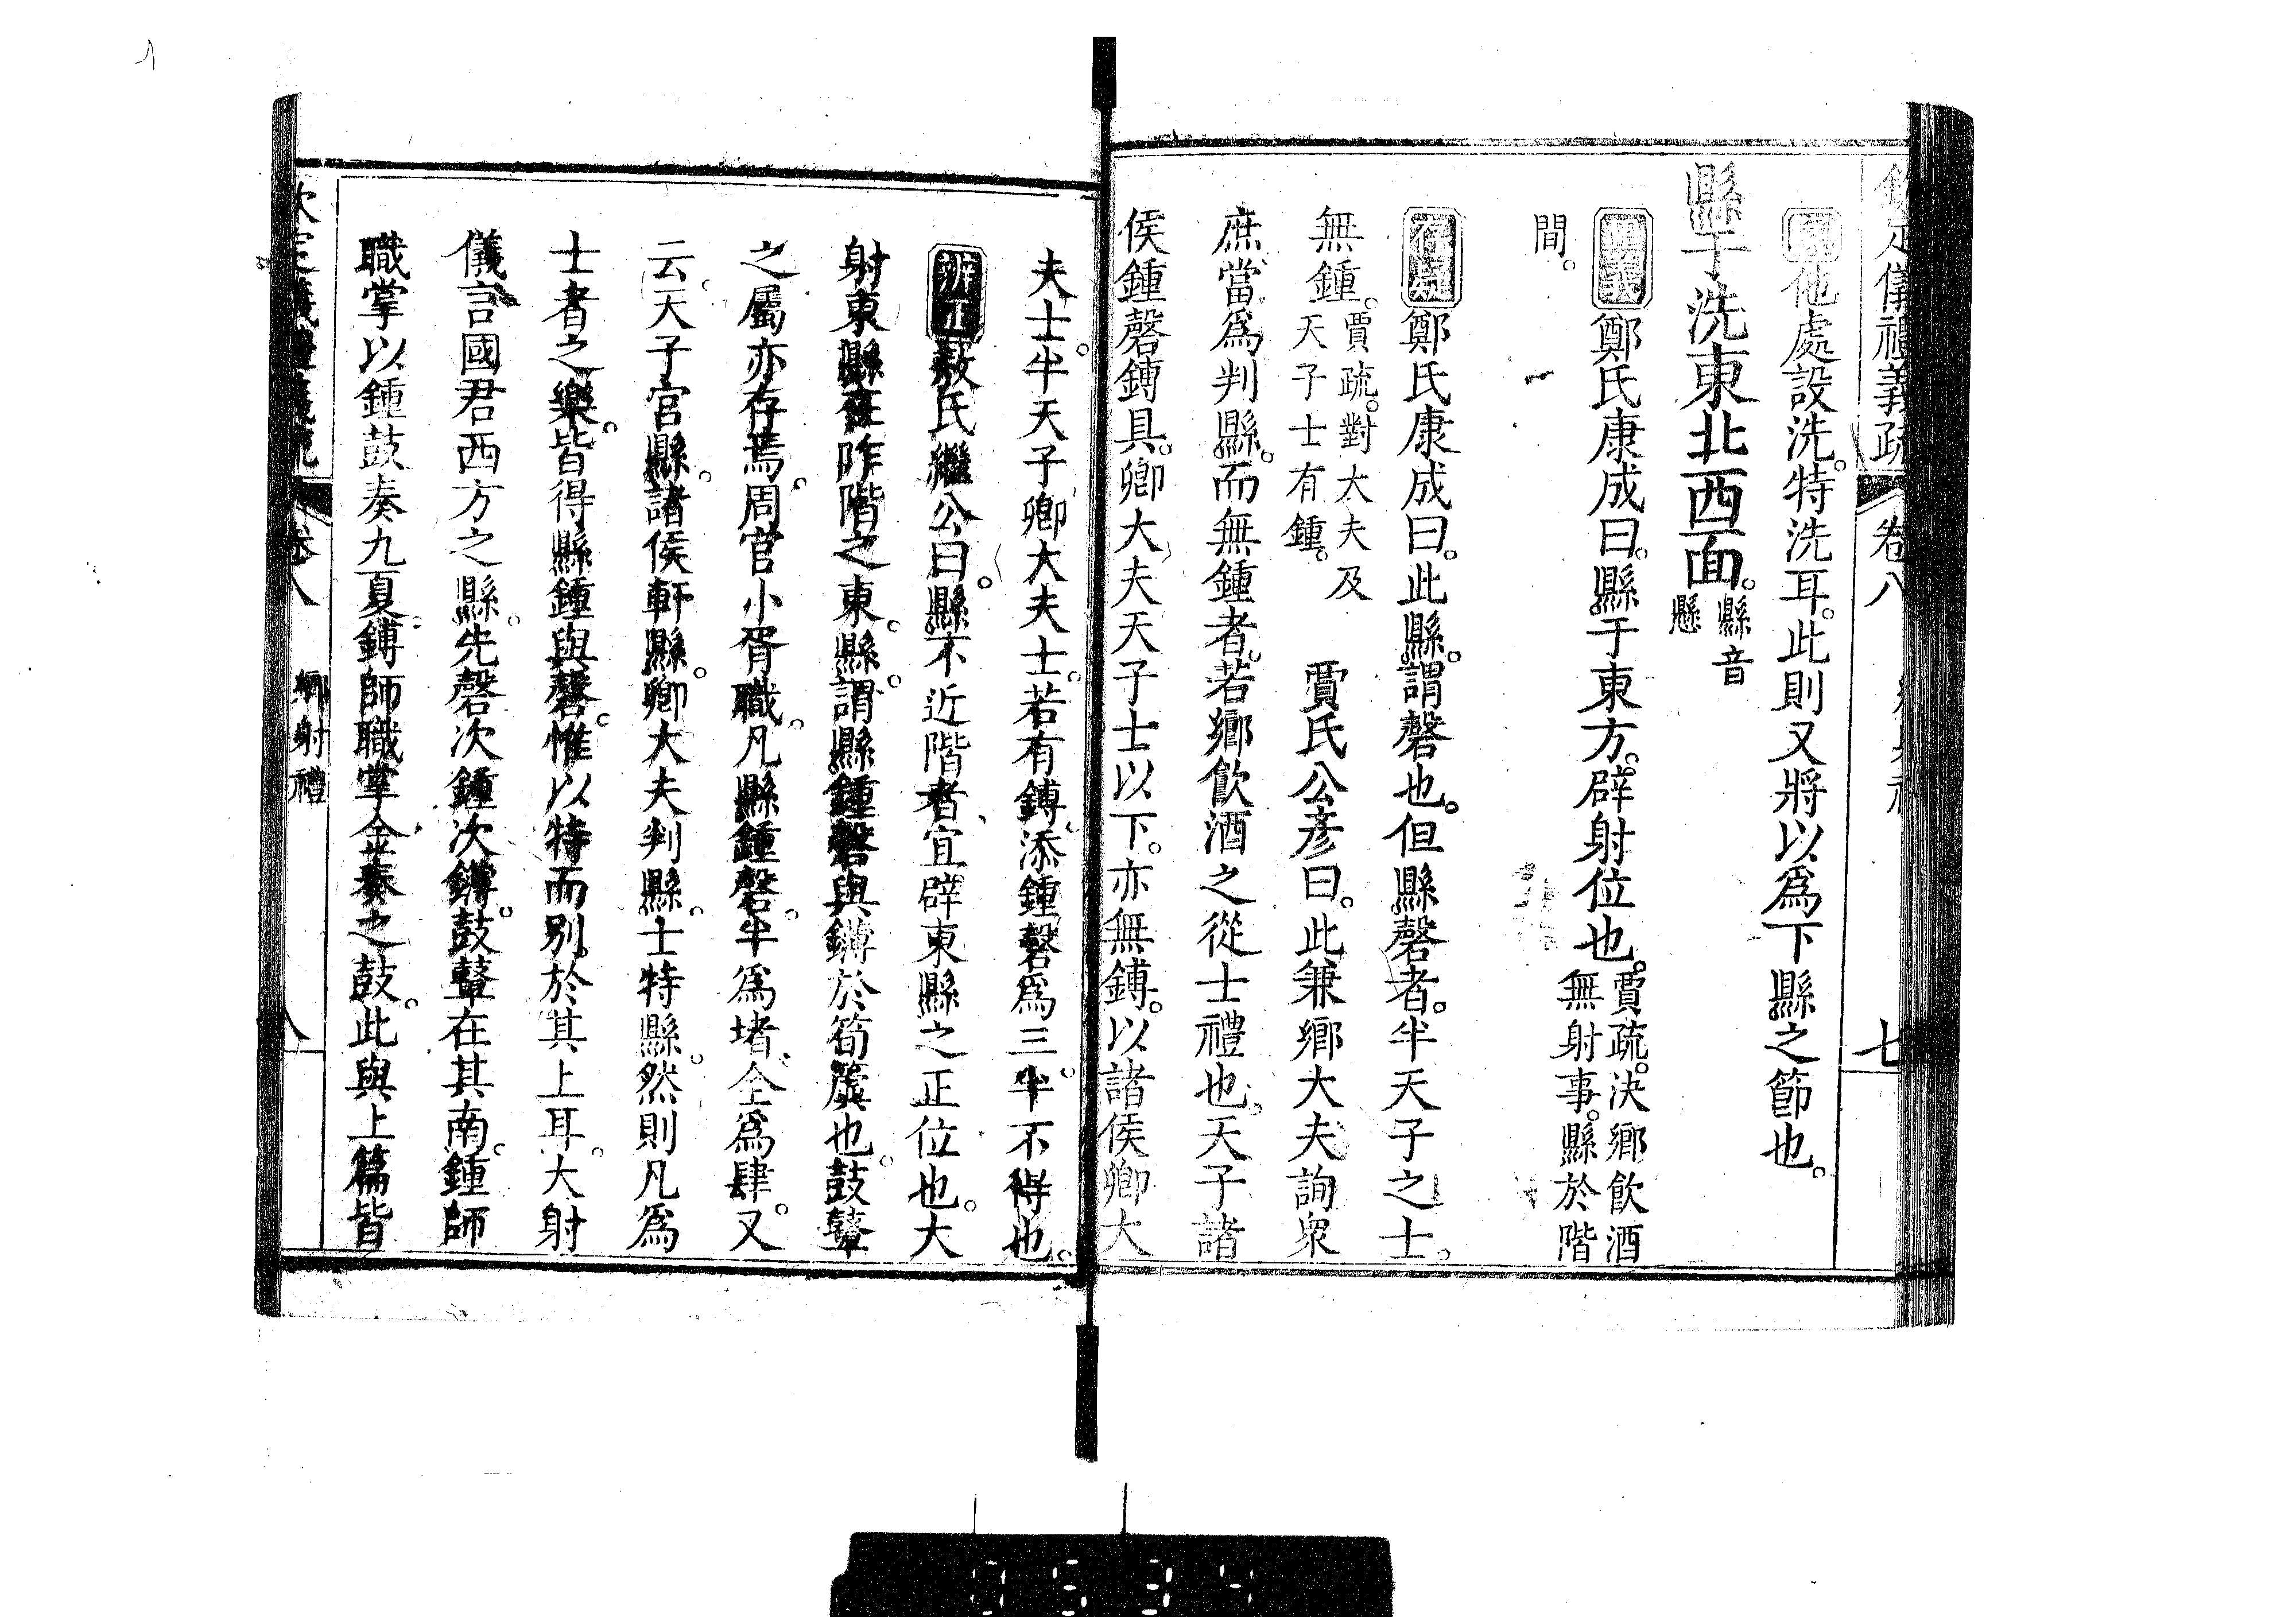 欽定儀禮義疏 卷八 七
他處設洗。特洗耳。此則又將以爲下縣之節也。
縣于洗東北西面。縣音懸
鄭氏康成曰。縣于東方。辟射位也。賈疏。決鄉飲酒無射事。縣於階
間。
存疑 鄭氏康成曰。此縣。謂磬也。但縣磬者。半天子之士。
無鍾。賈疏。對大夫及天子士有鍾。 賈氏公彥曰。此兼鄉大夫詢眾
庶當爲判縣。而無鍾者。若鄉飲酒之從士禮也。天子諸
侯鍾磬鎛具。卿大夫天子士以下。亦無鎛。以諸侯卿大
夫士。半天子卿大夫士。若有鎛。添鍾磬爲三。半不得也。
辨正 敖氏繼公曰。縣不近階者、宜辟東縣之正位也。大
射東縣在阼階之東。縣。謂縣鍾磬與鎛於筍簴也。鼓鼙
之屬亦存焉。周官小胥職。凡縣鍾磬。半爲堵、全爲肆。又
云。天子宮縣。諸侯軒縣。卿大夫判縣。士特縣。然則凡爲
士者之樂。皆得縣鍾與磬。惟以特而別。於其上耳。大射
儀言國君西方之縣。先磬次鍾次鎛。鼓鼙在其南。鍾師
職掌以鍾鼓奏九夏。鎛師職掌金奏之鼓。此與上篇皆
欽定儀禮義疏 卷八 鄉射禮 八